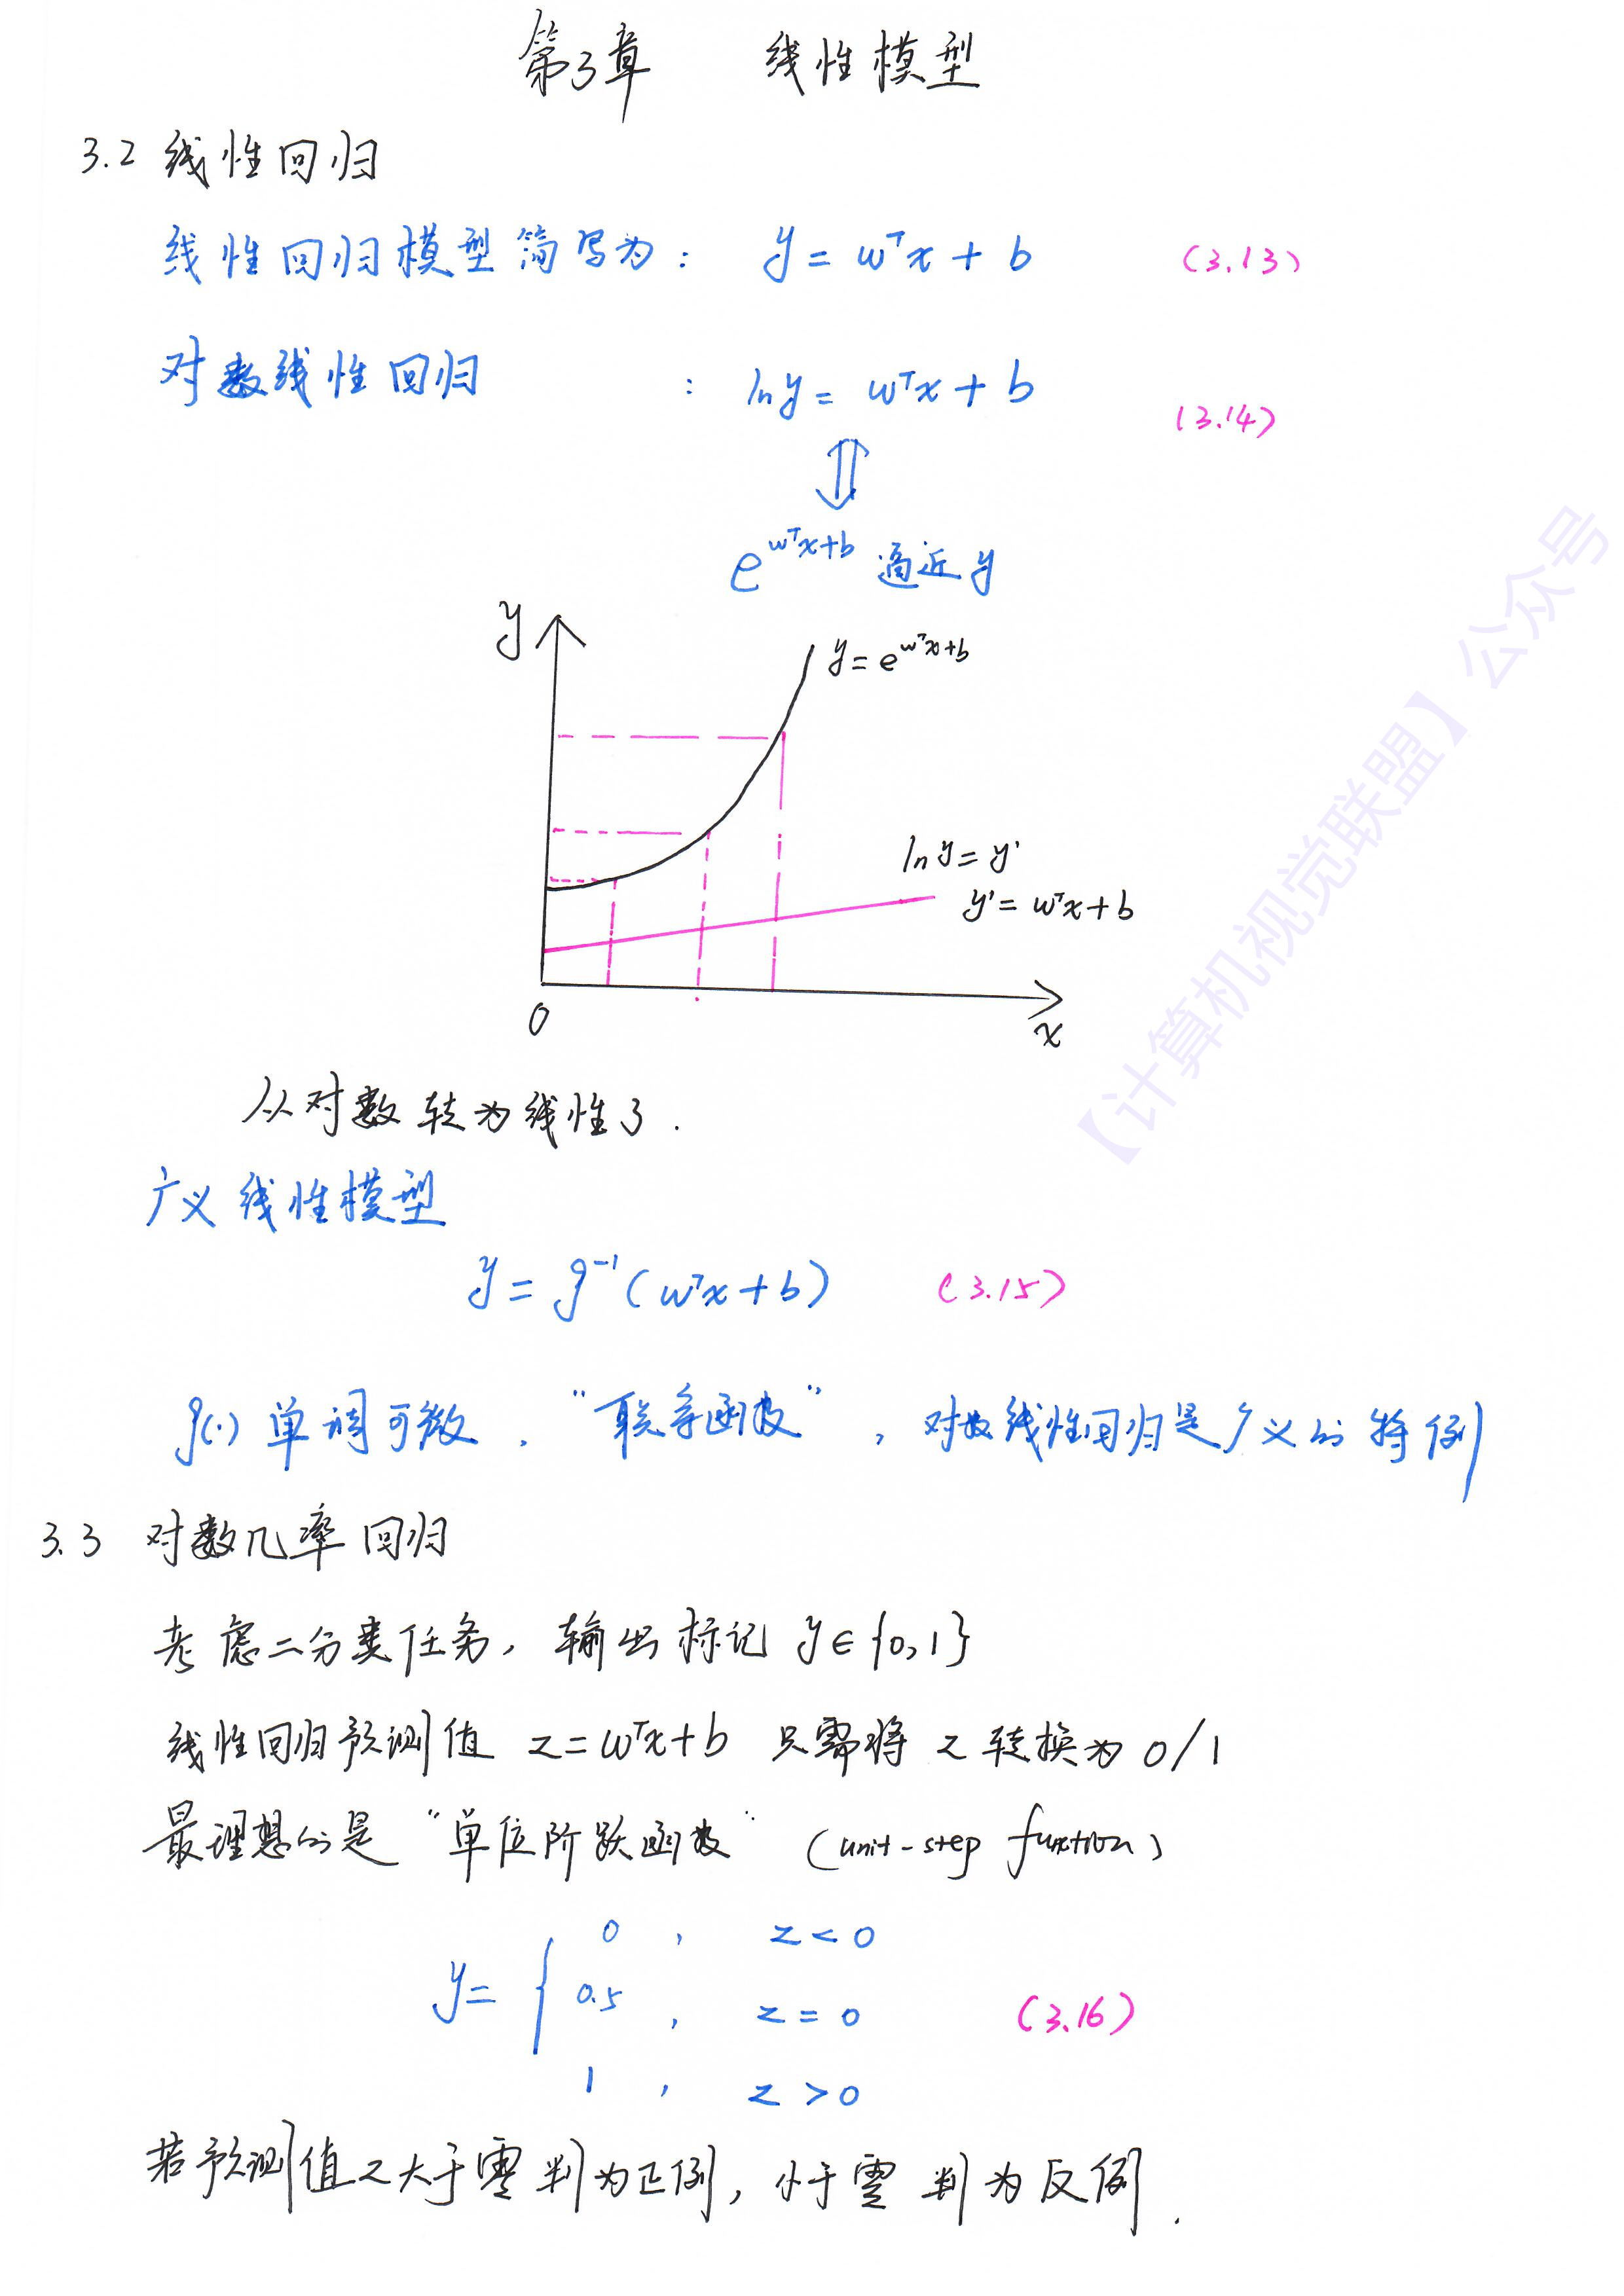 第3章 线性模型
3.2 线性回归
线性回归模型简写为： y = wᵀx + b (3.13)
对数线性回归 ： ln y = wᵀx + b (3.14)
⇕
e^{wᵀx+b} 逼近 y
y
y = e^{wᵀx+b}
ln y = y'
y' = wᵀx + b
0
x
从对数转为线性了.
广义线性模型
y = g⁻¹(wᵀx + b) (3.15)
g(·) 单调可微，“联系函数”，对数线性回归是广义的特例
3.3 对数几率回归
考虑二分类任务，输出标记 y∈{0,1}
线性回归预测值 z = wᵀx + b 只需将 z 转换为 0/1
最理想的是 “单位阶跃函数” (unit-step function)
0 , z < 0
y = { 0.5 , z = 0 (3.16)
1 , z > 0
若预测值z大于零判为正例，小于零判为反例.
【计算机视觉联盟】公众号